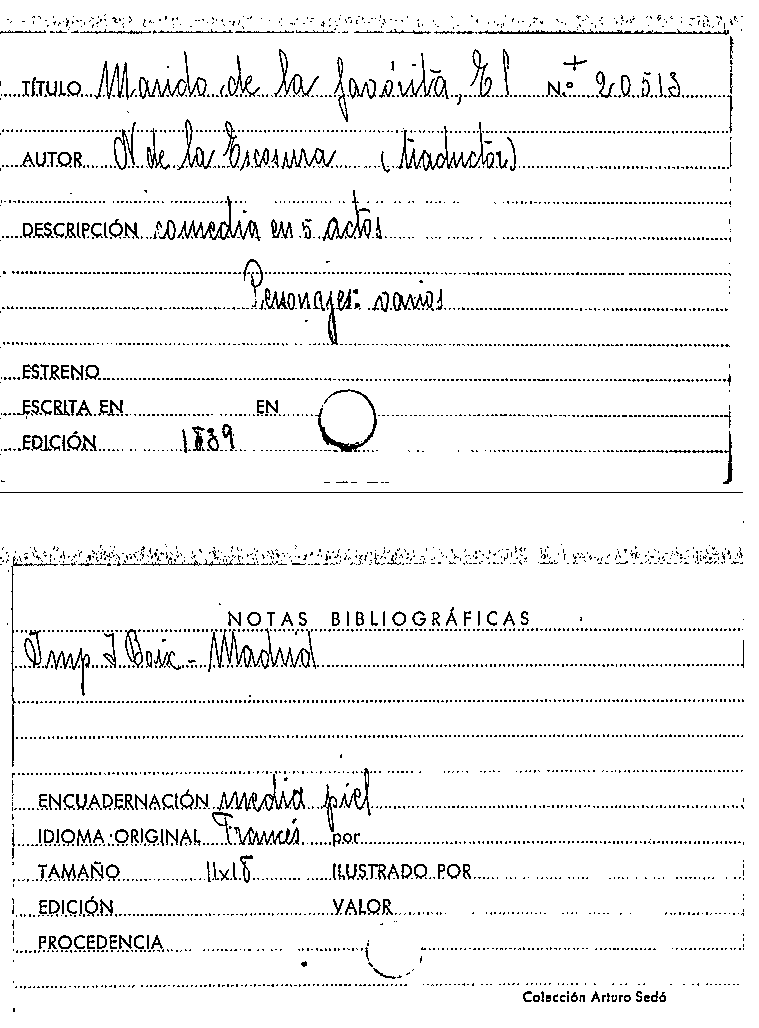 TÍTULO Marido de la favorita, El N.º + 20513
AUTOR N de la Escosura (traductor)
DESCRIPCIÓN comedia en 5 actos
Personajes: varios
ESTRENO
ESCRITA EN EN
EDICIÓN 1839
NOTAS BIBLIOGRÁFICAS
Imp I Boix - Madrid
ENCUADERNACIÓN media piel
IDIOMA ORIGINAL Francés por
TAMAÑO 11x18 ILUSTRADO POR
EDICIÓN VALOR
PROCEDENCIA
Colección Arturo Sedó